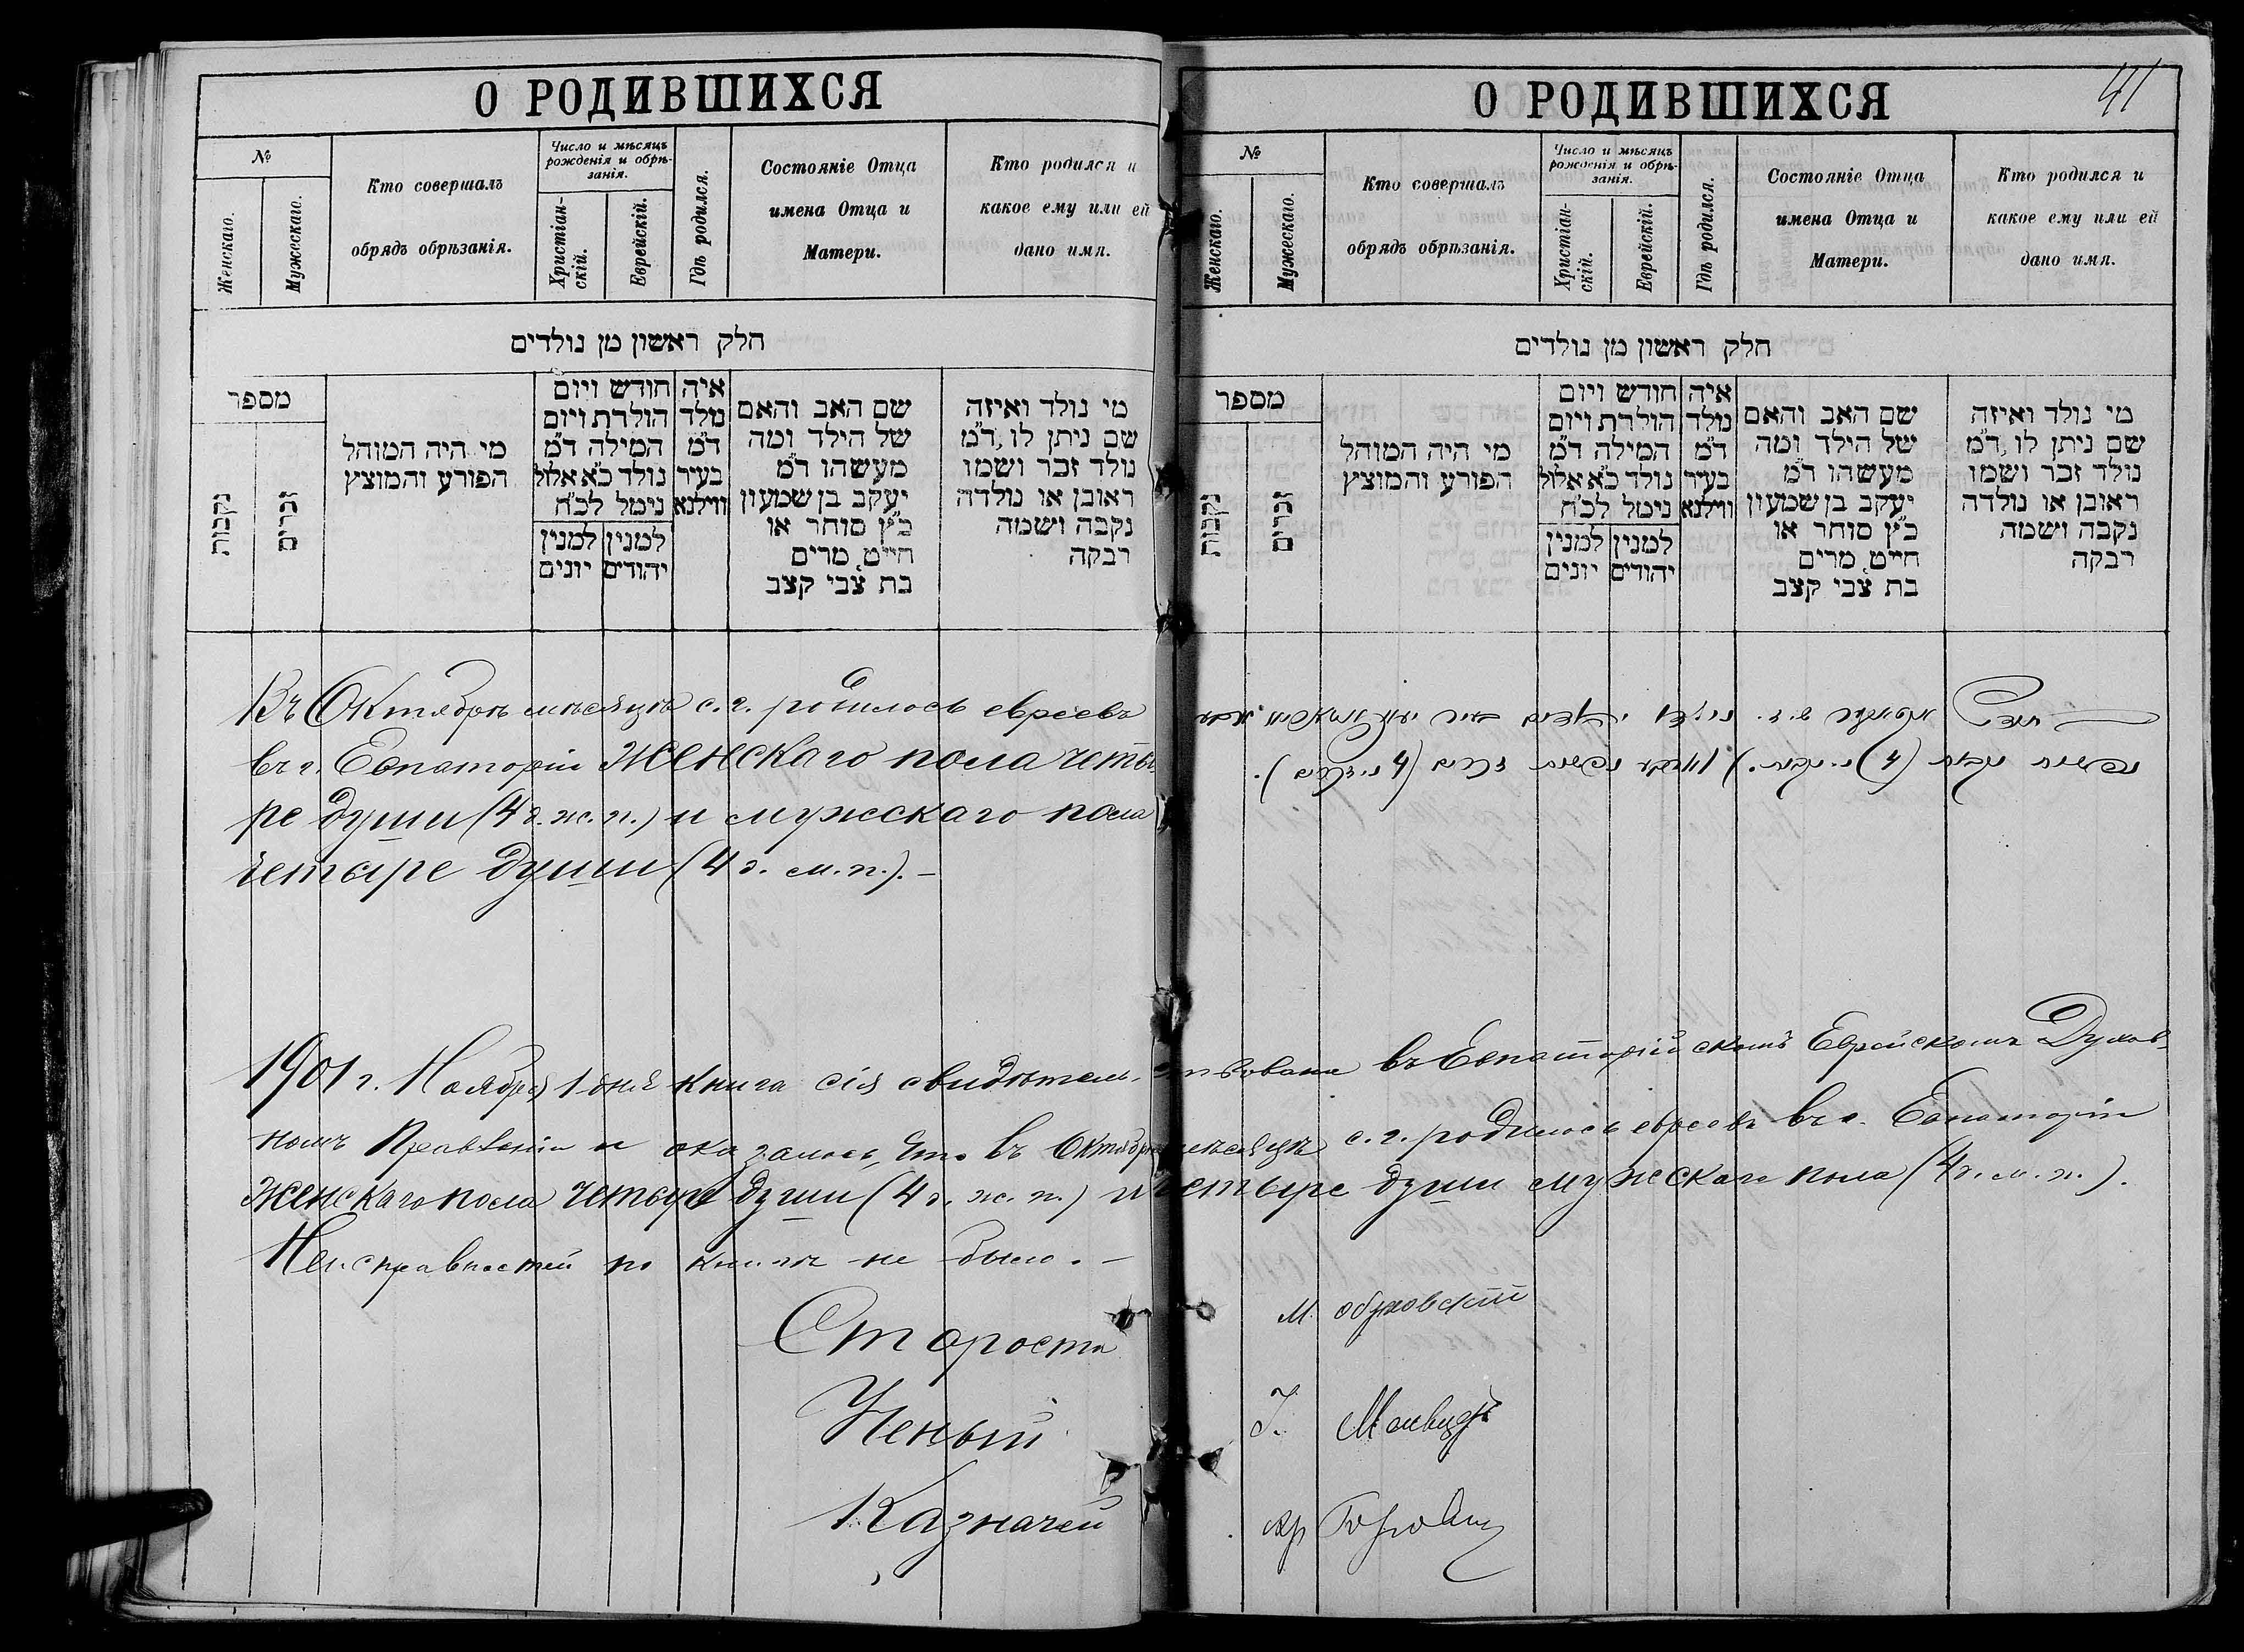 О РОДИВШИХСЯ
№
Женскаго.
Мужескаго.
Кто совершалъ
обрядъ обрѣзанія.
Число и мѣсяцъ
рожденія и обрѣ-
занія.
Христіан-
скій.
Еврейскій.
Гдѣ родился.
Состояніе Отца
имена Отца и
Матери.
Кто родился и
какое ему или ей
дано имя.
חלק ראשון מן נולדים
מספר
נקבות
זכרים
מי היה המוהל
הפורע והמוצץ
חודש ויום
הולדת ויום
המילה ד״מ
נולד כ״א אלול
נימל לכ״ח
למנין יהודים
למנין יונים
איה
נולד
ד״מ
בעיר
ווילנא
שם האב והאם
של הילד ומה
מעשהו ד״מ
יעקב בן שמעון
כ״ץ סוחר או
חייט, מרים
בת צבי קצב
מי נולד ואיזה
שם ניתן לו, ד״מ
נולד זכר ושמו
ראובן או נולדה
נקבה ושמה
רבקה
Въ Октябрѣ мѣсяцѣ с. г. родилось евреевъ
въ г. Евпаторіи женскаго пола четы
ре души (4 д. ж. п.) и мужскаго пола
четыре души (4 д. м. п.). —
О РОДИВШИХСЯ
41
№
Женскаго.
Мужескаго.
Кто совершалъ
обрядъ обрѣзанія.
Число и мѣсяцъ
рожденія и обрѣ-
занія.
Христіан-
скій.
Еврейскій.
Гдѣ родился.
Состояніе Отца
имена Отца и
Матери.
Кто родился и
какое ему или ей
дано имя.
חלק ראשון מן נולדים
מספר
נקבות
זכרים
מי היה המוהל
הפורע והמוצץ
חודש ויום
הולדת ויום
המילה ד״מ
נולד כ״א אלול
נימל לכ״ח
למנין יהודים
למנין יונים
איה
נולד
ד״מ
בעיר
ווילנא
שם האב והאם
של הילד ומה
מעשהו ד״מ
יעקב בן שמעון
כ״ץ סוחר או
חייט, מרים
בת צבי קצב
מי נולד ואיזה
שם ניתן לו, ד״מ
נולד זכר ושמו
ראובן או נולדה
נקבה ושמה
רבקה
1901 г. Ноября 1 дня книга сія свидѣтельствована въ Евпаторійскомъ Еврейскомъ Духов-
номъ Правленіи и оказалось, что въ Октябрѣ мѣсяцѣ с. г. родилось евреевъ въ г. Евпаторіи
женскаго пола четыре души (4 д. ж. п.) и четыре души мужескаго пола (4 д. м. п.).
Неисправностей по книгѣ не было. —
Староста М.
Ученый
Казначей